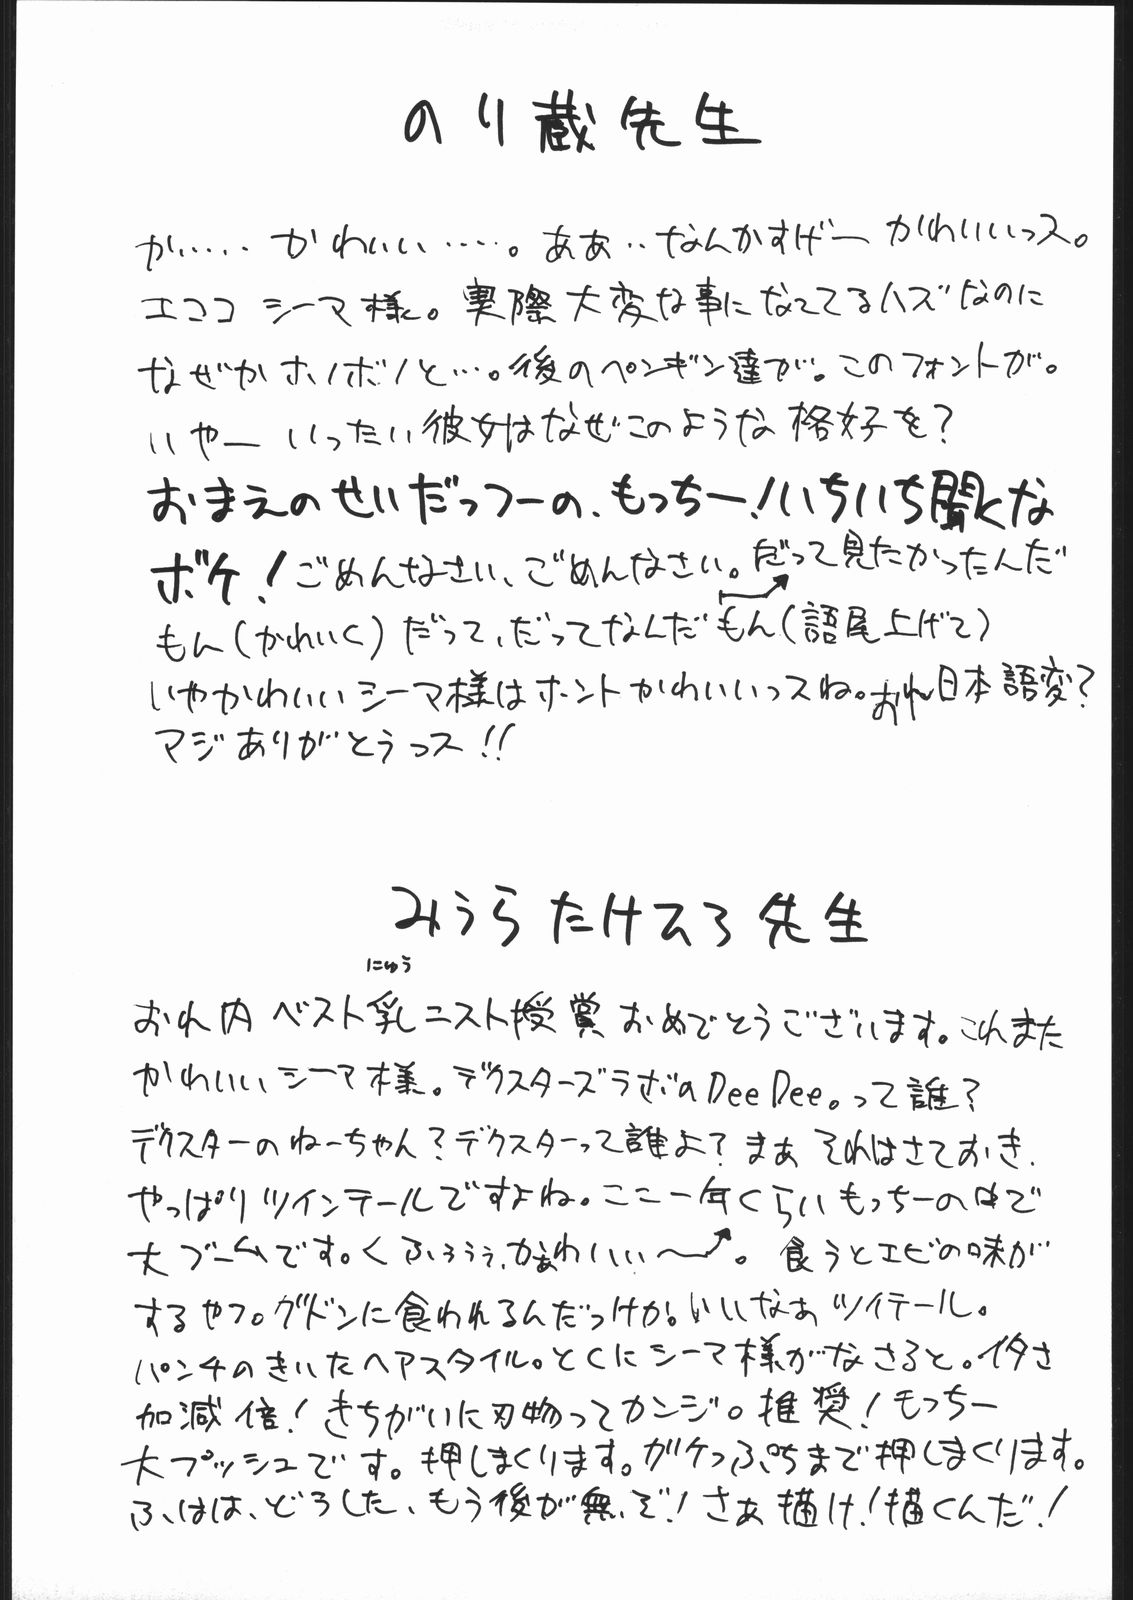 のり蔵先生
か‥‥‥かわいい‥‥‥。ああ‥なんかすげーかわいいっス。
エココシーマ様。実際大変な事になってるハズなのに
なぜかホノボノと…。後のペンギン達が。このフォントが。
いやーいったい彼女はなぜこのような格好を?
おまえのせいだっつーの、もっちー!いちいち聞くな
ボケ!ごめんなさい、ごめんなさい。だって見たかったんだ
もん(かわいく)だって、だってなんだもん(語尾上げて)
いやかわいいシーマ様はホントかわいいっスね。おれ日本語変?
マジありがとうっス!!
みうらたけひろ先生
にゅう
おれ内ベスト乳ニスト授賞おめでとうございます。これまた
かわいいシーマ様。デクスターズラボのDeeDee。って誰?
デクスターのねーちゃん?デクスターって誰よ?まぁそれはさておき、
やっぱりツインテールですよね。ここ一年くらいもっちーの中で
大ブームです。くふぅぅぅ、かぁわいいぃ〜。食うとエビの味が
するヤツ。グドンに食われるんだっけか。いいなぁツイテール。
パンチのきいたヘアスタイル。とくにシーマ様がなさると。イタさ
加減倍!きちがいに刃物ってカンジ。推奨!もっちー
大プッシュです。押しまくります。ガケっぷちまで押しまくります。
ふはは、どうした、もう後が無いぞ!さあ描け!描くんだ!